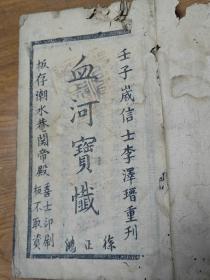 壬子歲信士李澤瑨重刊
血河寶懺
徐正鴻
板存潮水巷關帝殿
善士印刷
板不取資